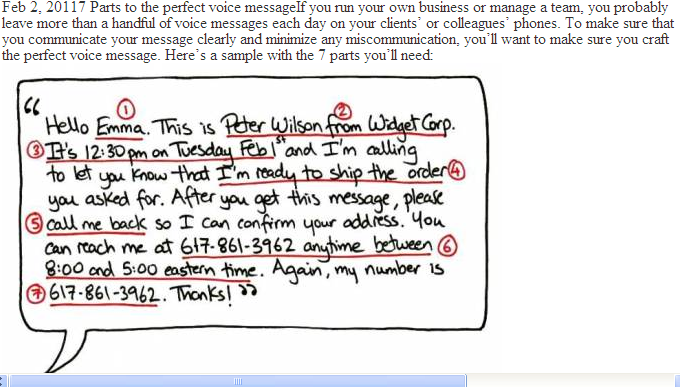 Feb 2, 20117 Parts to the perfect voice messageIf you run your own business or manage a team, you probably
leave more than a handful of voice messages each day on your clients’ or colleagues’ phones. To make sure that
you communicate your message clearly and minimize any miscommunication, you’ll want to make sure you craft
the perfect voice message. Here’s a sample with the 7 parts you’ll need:
“ ① ②
Hello Emma. This is Peter Wilson from Widget Corp.
③ It's 12:30pm on Tuesday Feb 1st and I'm calling
to let you know that I'm ready to ship the order ④
you asked for. After you get this message, please
⑤ call me back so I can confirm your address. You
can reach me at 617-861-3962 anytime between ⑥
8:00 and 5:00 eastern time. Again, my number is
⑦ 617-861-3962. Thanks! ”